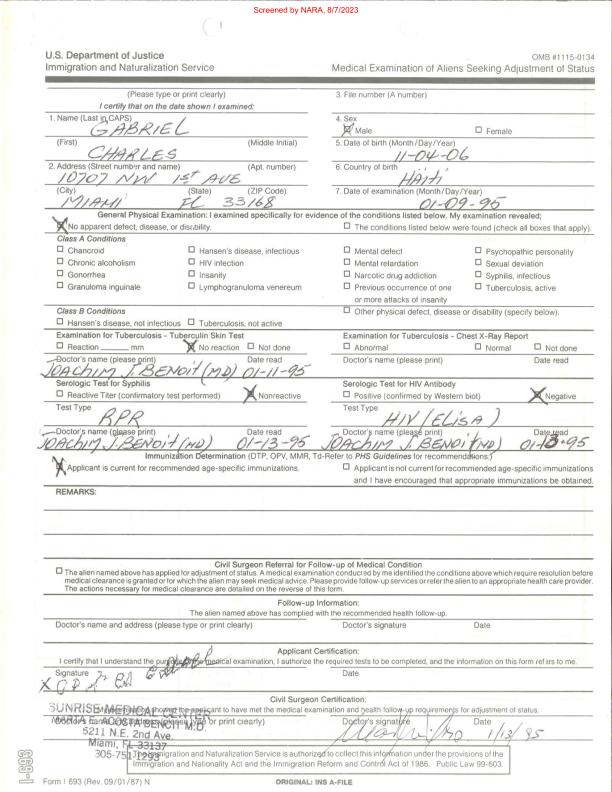 Screened by NARA, 8/7/2023
U.S. Department of Justice
Immigration and Naturalization Service
OMB #1115-0134
Medical Examination of Aliens Seeking Adjustment of Status
(Please type or print clearly)
I certify that on the date shown I examined:
3. File number (A number)
1. Name (Last in CAPS)
GABRIEL
4. Sex
☒ Male ☐ Female
(First) (Middle Initial)
CHARLES
5. Date of birth (Month/Day/Year)
11-04-06
2. Address (Street number and name) (Apt. number)
10707 NW 1st AVE
6. Country of birth
HAITI
(City) (State) (ZIP Code)
MIAMI FL 33168
7. Date of examination (Month/Day/Year)
01-09-95
General Physical Examination: I examined specifically for evidence of the conditions listed below. My examination revealed;
☒ No apparent defect, disease, or disability. ☐ The conditions listed below were found (check all boxes that apply).
Class A Conditions
☐ Chancroid ☐ Hansen's disease, infectious ☐ Mental defect ☐ Psychopathic personality
☐ Chronic alcoholism ☐ HIV infection ☐ Mental retardation ☐ Sexual deviation
☐ Gonorrhea ☐ Insanity ☐ Narcotic drug addiction ☐ Syphilis, infectious
☐ Granuloma inguinale ☐ Lymphogranuloma venereum ☐ Previous occurrence of one ☐ Tuberculosis, active
or more attacks of insanity
Class B Conditions
☐ Other physical defect, disease or disability (specify below).
☐ Hansen's disease, not infectious ☐ Tuberculosis, not active
Examination for Tuberculosis - Tuberculin Skin Test
☐ Reaction ____ mm ☒ No reaction ☐ Not done
Doctor's name (please print) Date read
JOACHIM J. BENOIT (MD) 01-11-95
Examination for Tuberculosis - Chest X-Ray Report
☐ Abnormal ☐ Normal ☐ Not done
Doctor's name (please print) Date read
Serologic Test for Syphilis
☐ Reactive Titer (confirmatory test performed) ☒ Nonreactive
Test Type
RPR
Doctor's name (please print) Date read
JOACHIM J. BENOIT (MD) 01-13-95
Serologic Test for HIV Antibody
☐ Positive (confirmed by Western blot) ☒ Negative
Test Type
HIV (ELISA)
Doctor's name (please print) Date read
JOACHIM J. BENOIT (MD) 01-13-95
Immunization Determination (DTP, OPV, MMR, Td-Refer to PHS Guidelines for recommendations.)
☒ Applicant is current for recommended age-specific immunizations. ☐ Applicant is not current for recommended age-specific immunizations
and I have encouraged that appropriate immunizations be obtained.
REMARKS:
Civil Surgeon Referral for Follow-up of Medical Condition
☐ The alien named above has applied for adjustment of status. A medical examination conducted by me identified the conditions above which require resolution before
medical clearance is granted or for which the alien may seek medical advice. Please provide follow-up services or refer the alien to an appropriate health care provider.
The actions necessary for medical clearance are detailed on the reverse of this form.
Follow-up Information:
The alien named above has complied with the recommended health follow-up.
Doctor's name and address (please type or print clearly) Doctor's signature Date
Applicant Certification:
I certify that I understand the purpose of the medical examination, I authorize the required tests to be completed, and the information on this form refers to me.
Signature Date
Civil Surgeon Certification:
SUNRISE MEDICAL CENTER
applicant to have met the medical examination and health follow-up requirements for adjustment of status.
MARIA E. ACOSTA BENCH M.D.
or print clearly) Doctor's signature Date
5211 N.E. 2nd Ave.
1/13/95
Miami, FL 33137
305-751-1293
The Immigration and Naturalization Service is authorized to collect this information under the provisions of the
Immigration and Nationality Act and the Immigration Reform and Control Act of 1986, Public Law 99-603.
I-693
Form I 693 (Rev. 09/01/87) N
ORIGINAL: INS A-FILE